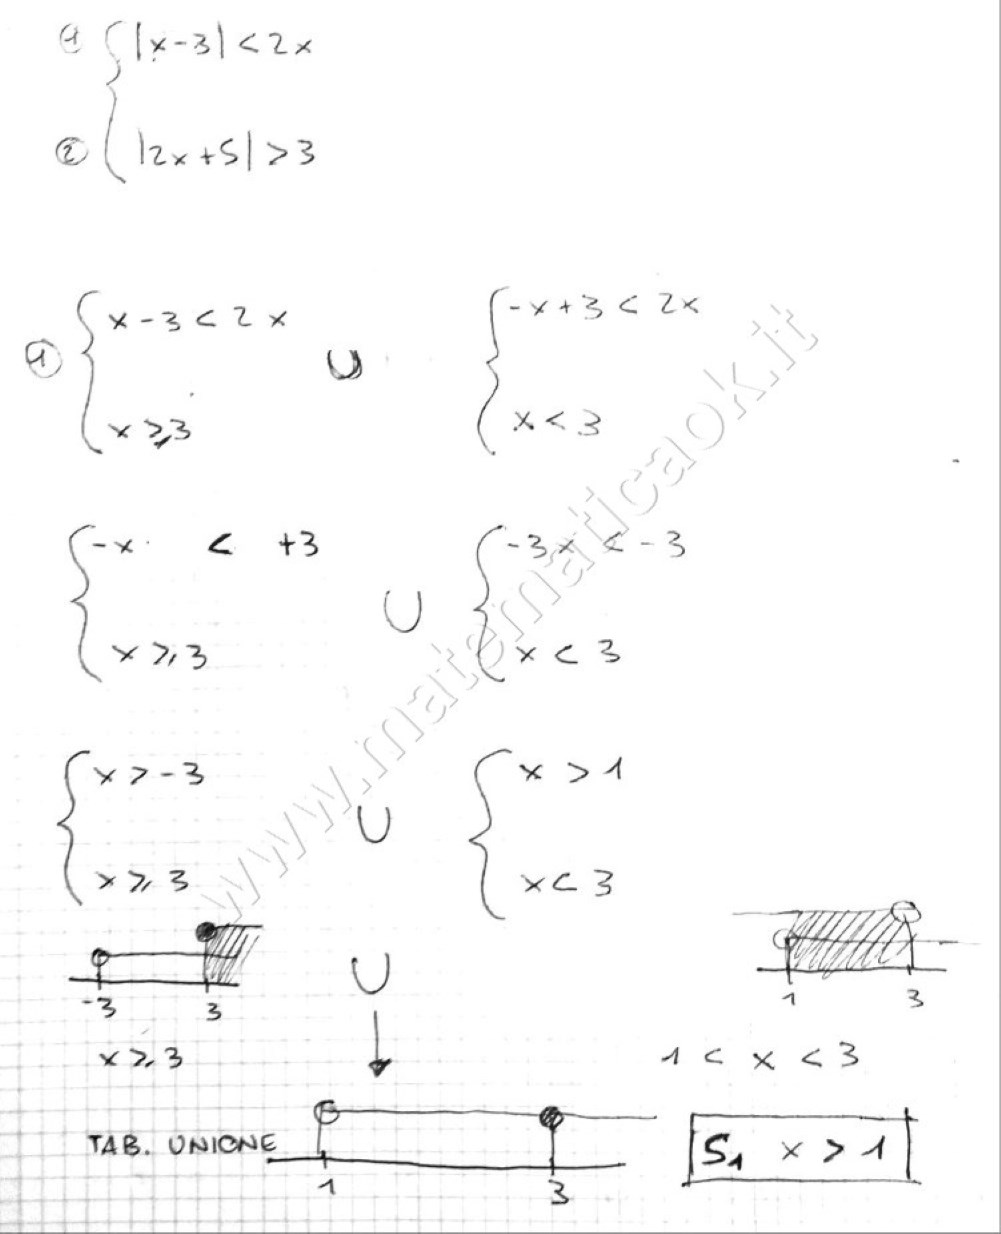 ① { |x-3| < 2x
② { |2x+5| > 3
① { x-3 < 2x ∪ { -x+3 < 2x
x ≥ 3 x < 3
{ -x < +3 ∪ { -3x < -3
x ≥ 3 x < 3
{ x > -3 ∪ { x > 1
x ≥ 3 x < 3
∪
-3 3 1 3
x ≥ 3 1 < x < 3
TAB. UNIONE S₁ x > 1
1 3
www.matematicaok.it